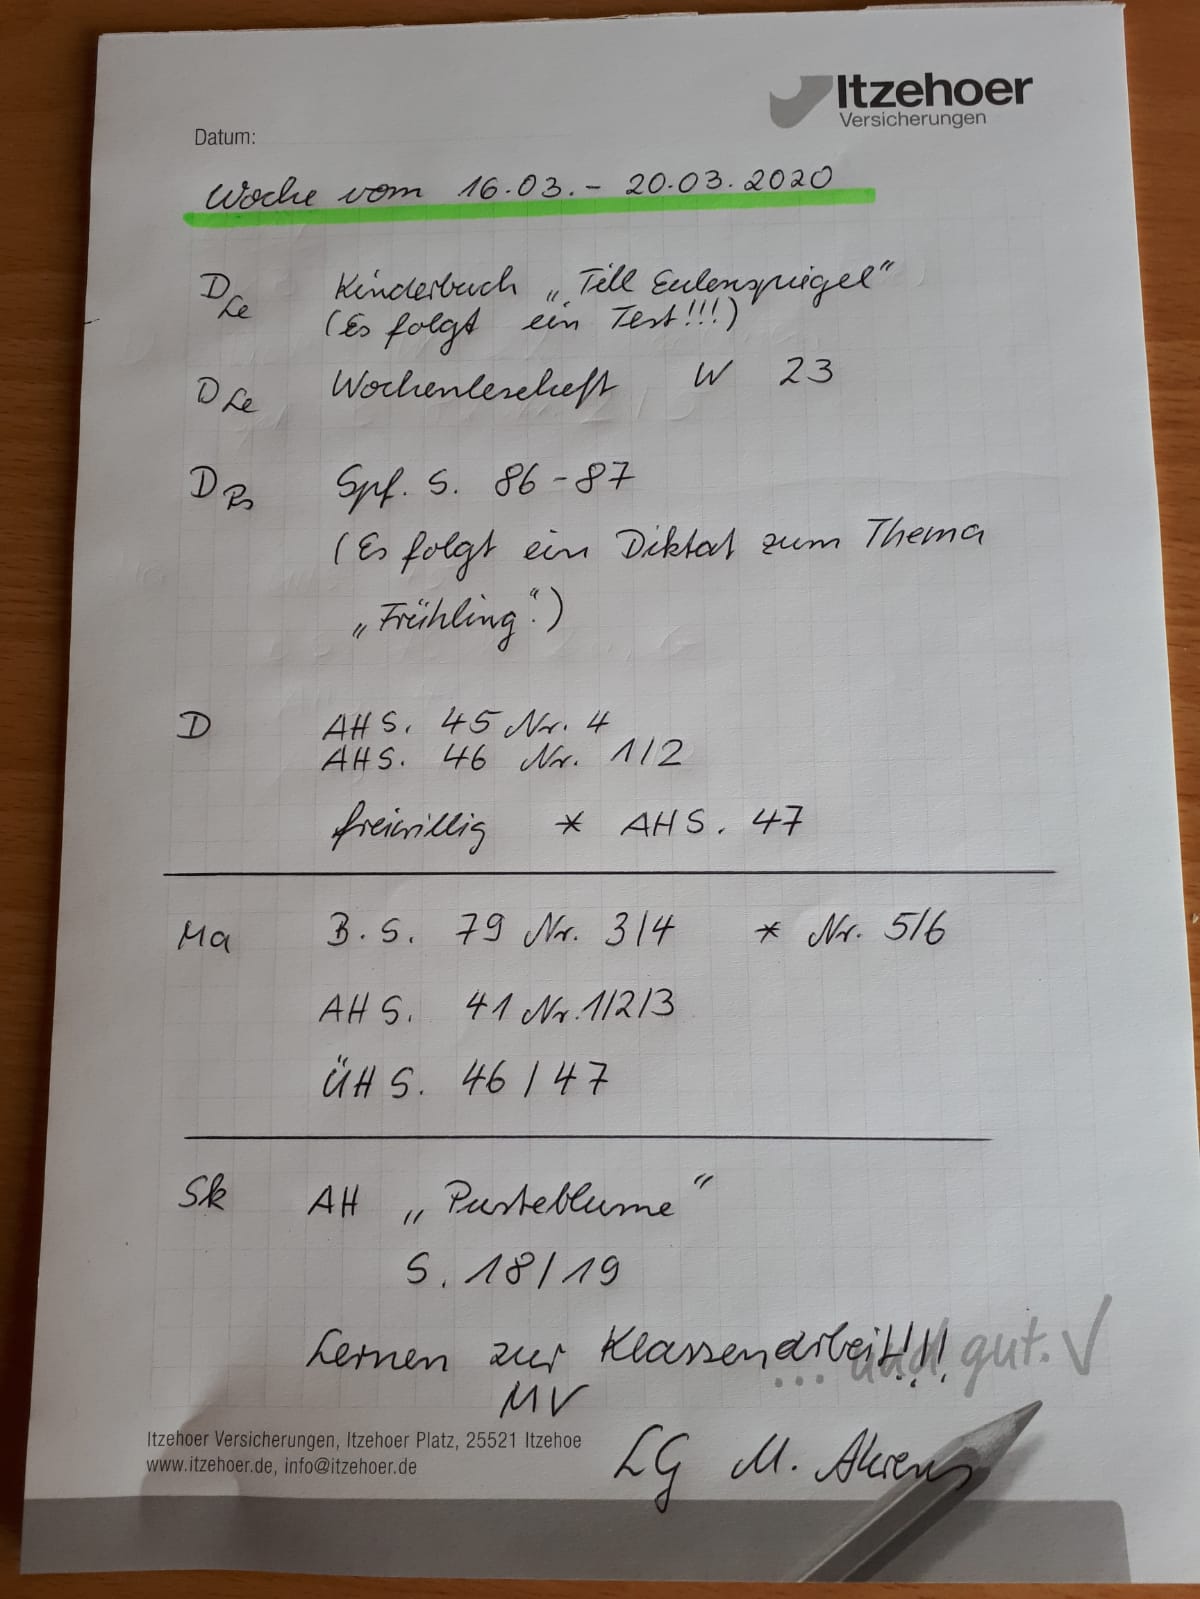 Itzehoer
Versicherungen
Datum:
Woche vom 16.03. - 20.03.2020
D Le Kinderbuch „Till Eulenspiegel“
(Es folgt ein Test!!!)
D Le Wochenleseheft W 23
D Rs Spf. S. 86-87
(Es folgt ein Diktat zum Thema
„Frühling“.)
D AH S. 45 Nr. 4
AH S. 46 Nr. 1/2
freiwillig * AH S. 47
Ma B. S. 79 Nr. 3/4 * Nr. 5/6
AH S. 41 Nr. 1/2/3
ÜH S. 46/47
Sk AH „Pusteblume“
S. 18/19
Lernen zur Klassenarbeit!!!
... und gut.
MV
LG M. Ahrens
Itzehoer Versicherungen, Itzehoer Platz, 25521 Itzehoe
www.itzehoer.de, info@itzehoer.de